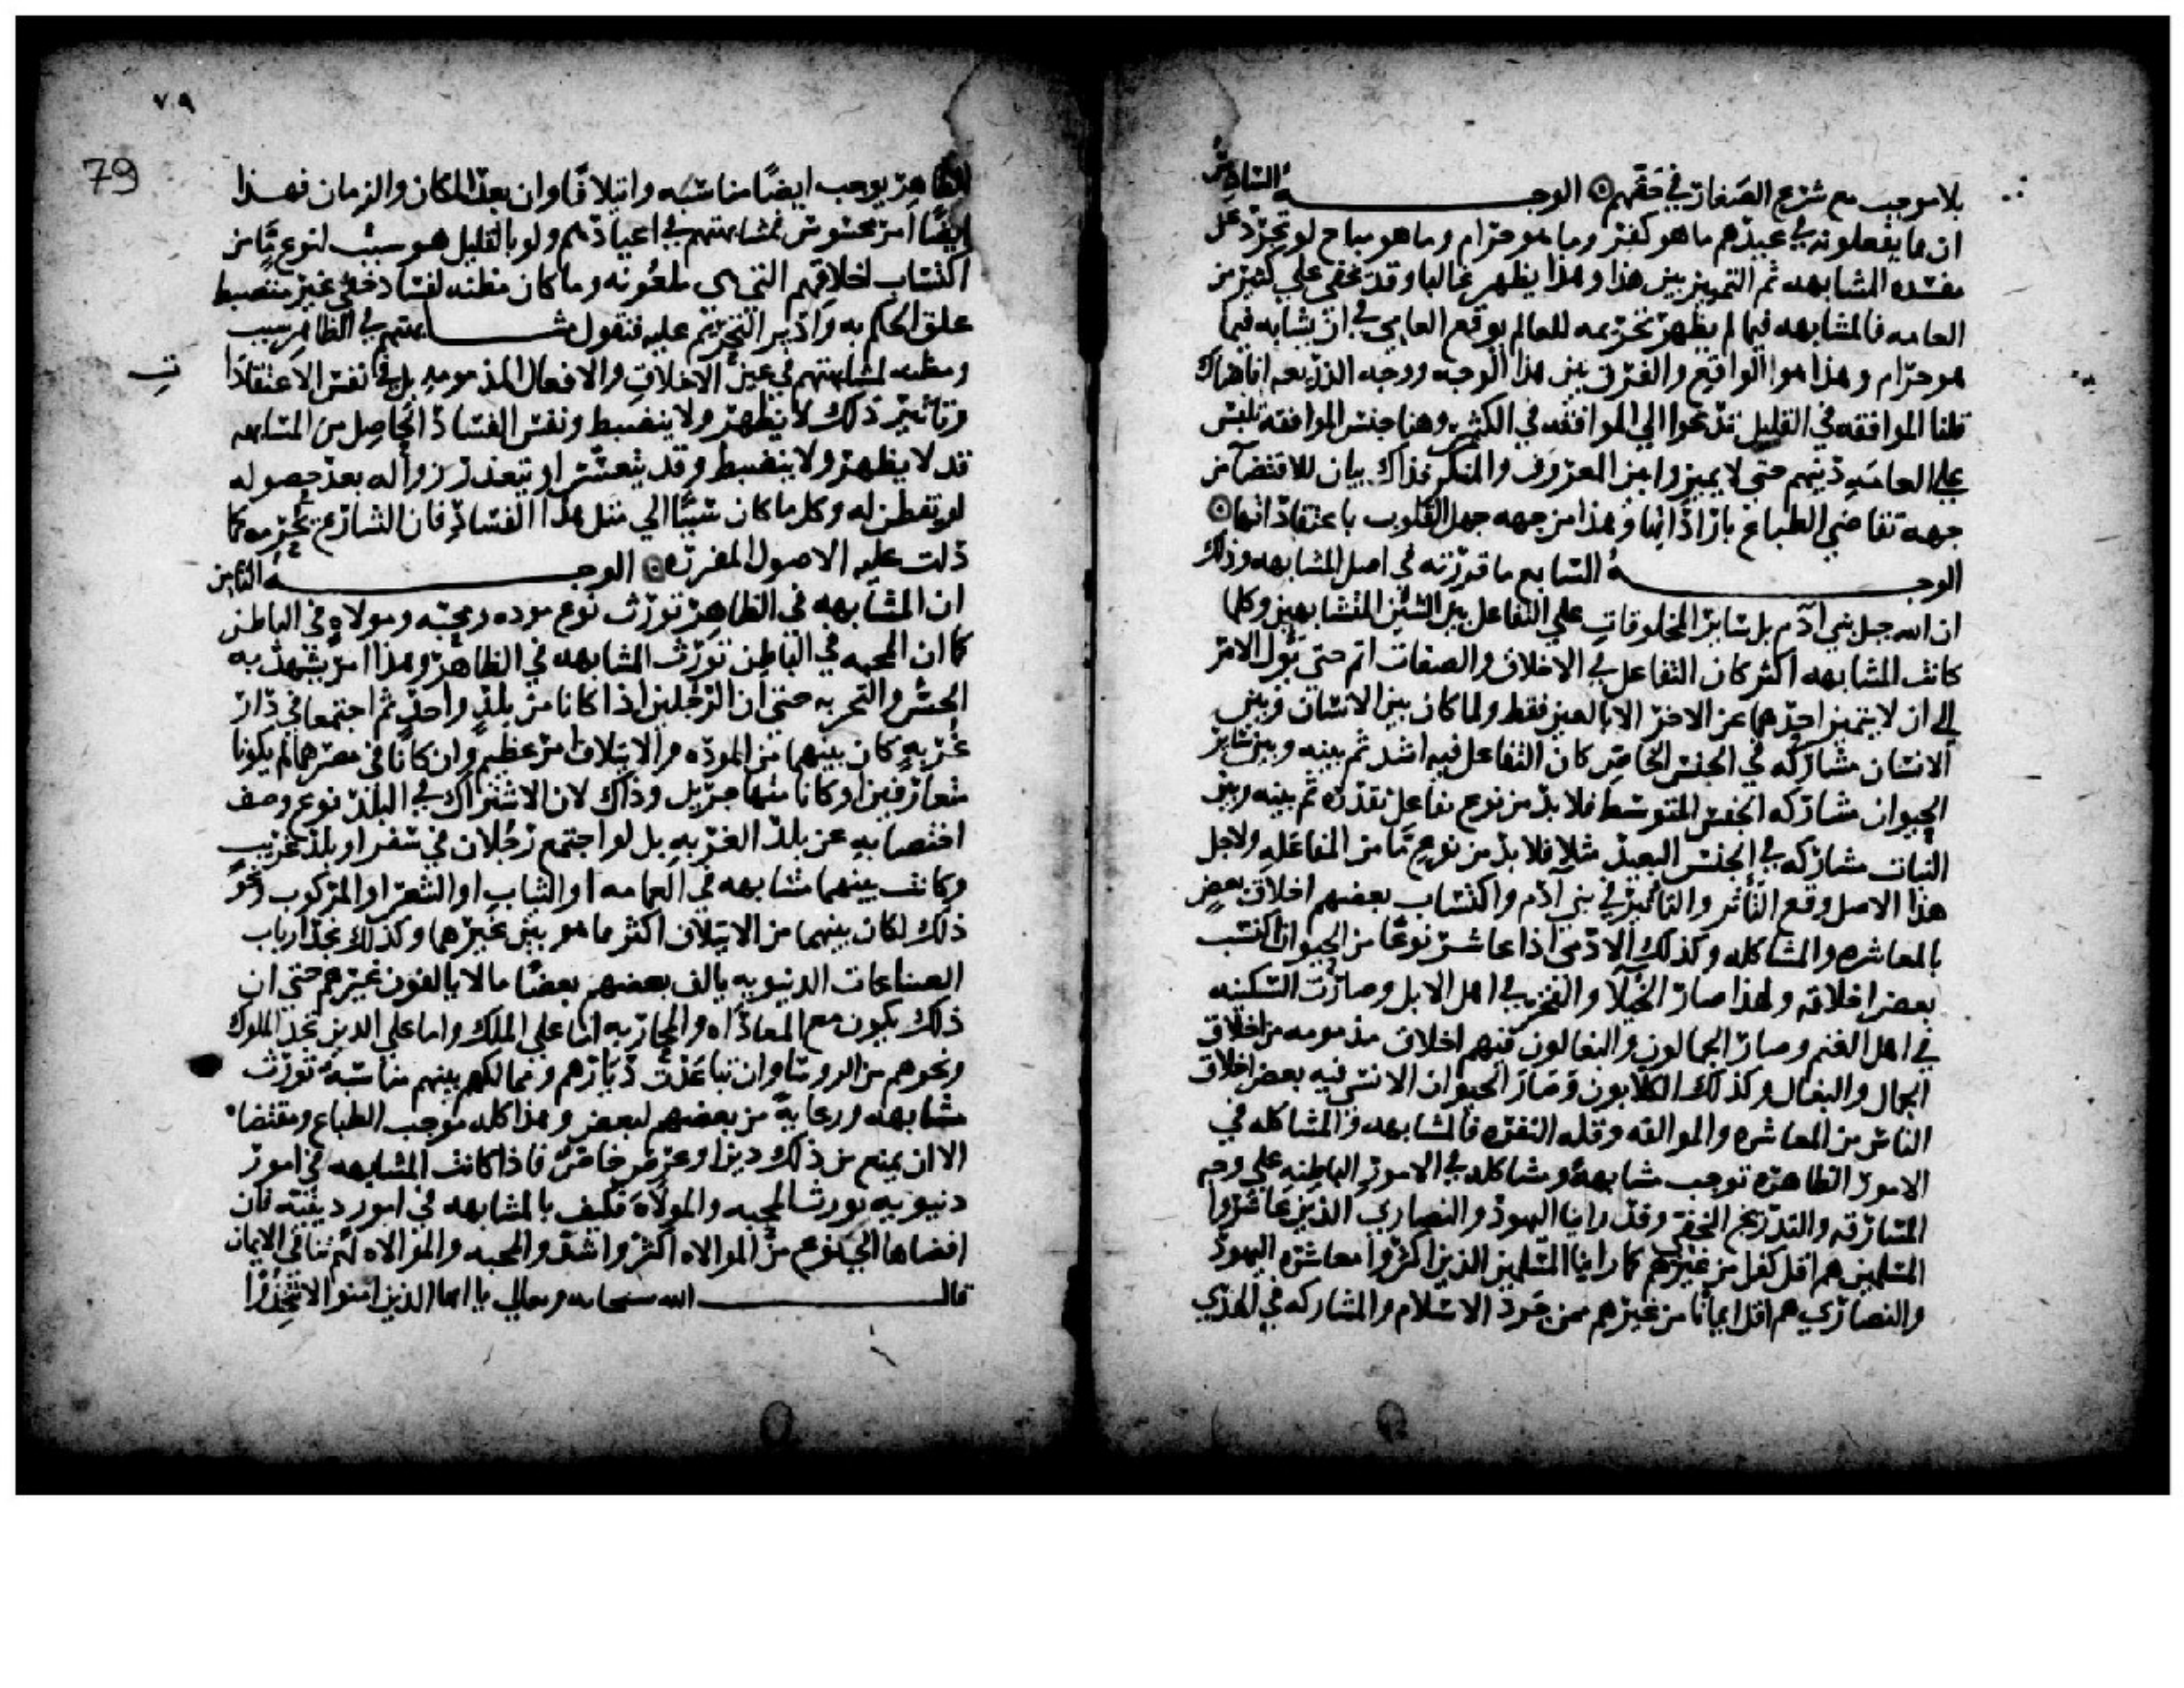 بلا موجب مع شرع الصغار في حقهم ۞ الوجـــــــه السادس
ان ما يفعلونه في عيدهم ما هو كفر وما هو حرام وما هو مباح لو تجرد عن
مفسده المشابهه ثم التمييز بين هذا وهذا يظهر غالبا وقد يخفي علي كثير من
العامه فالمشابهه فيما لم يظهر تحريمه للعالم يوقع العامي في ان يشابه فيما
هو حرام وهذا هو الواقع والفرق بين هذا الوجه ووجه الذريعه انا هناك
قلنا الموافقه في القليل تدعوا الي الموافقه في الكثير وهنا جنس الموافقه تلبس
علي العامه دينهم حتي لا يميزوا بين المعروف والمنكر فذاك بيان للاقتضا من
جهه تقاضي الطباع بارادتها وهذا من جهه جهل القلوب باعتقاداتها ۞
الوجـــــــه السابع ما قررته في اصل المشابهه وذلك
ان الله جبل بني آدم بل ساير المخلوقات علي التفاعل بين الشيئين المتشابهين وكلما
كانت المشابهه اكثر كان التفاعل في الاخلاق والصفات اتم حتي يؤل الامر
الي ان لا يتميز احدهما عن الاخر الا بالعين فقط ولما كان بين الانسان وبين
الانسان مشاركه في الجنس الخاص كان التفاعل فيه اشد ثم بينه وبين ساير
الحيوان مشاركه الجنس المتوسط فلا بد من نوع تفاعل بقدره ثم بينه وبين
النبات مشاركه في الجنس البعيد مثلا فلا بد من نوع ما من المفاعله ولاجل
هذا الاصل وقع التاثر والتاثير في بني آدم واكتساب بعضهم اخلاق بعض
بالمعاشره والمشاكله وكذلك الادمي اذا عاشر نوعا من الحيوان اكتسب
بعض اخلاقه ولهذا صار الخيلا والفخر في اهل الابل وصارت السكينه
في اهل الغنم وصار الجمالون والبغالون فيهم اخلاق مذمومه من اخلاق
الجمال والبغال وكذلك الكلابون وصار الحيوان الانسي فيه بعض اخلاق
الناس من المعاشره والموالفه وقله النفره فالمشابهه والمشاكله في
الامور الظاهره توجب مشابهة ومشاكله في الامور الباطنه علي وجه
المسارقه والتدريج الخفي وقد راينا اليهود والنصاري الذين عاشروا
المسلمين هم اقل كفرا من غيرهم كما راينا المسلمين الذين اكثروا معاشره اليهود
والنصاري هم اقل ايمانا من غيرهم ممن جرد الاسلام والمشاركه في الهدي
٧٩
79
الظاهر يوجب ايضا مناسبه وايتلافا وان بعد المكان والزمان فهذا
ايضا امر محسوس فمشابهتهم في اعيادهم ولو بالقليل هو سبب لنوع ما من
اكتساب اخلاقهم التي هي ملعونه وما كان مظنه لفساد خفي غير منضبط
علق الحكم به وادير التحريم عليه فنقول مشـــــابهتهم في الظاهر سبب
ومظنه لمشابهتهم في عين الاخلاق والافعال المذمومه بل في نفس الاعتقادات
وتاثير ذلك لا يظهر ولا ينضبط ونفس الفساد الحاصل من المشابهه
قد لا يظهر ولا ينضبط وقد يتعسر او يتعذر زواله بعد حصوله
لو تفطن له وكل ما كان سببا الي مثل هذا الفساد فان الشارع يحرمه كما
دلت عليه الاصول المقرره ۞ الوجـــــــه الثامن
ان المشابهه في الظاهر تورث نوع موده ومحبه وموالاه في الباطن
كما ان المحبه في الباطن تورث المشابهه في الظاهر وهذا امر يشهد به
الحس والتجربه حتي ان الرجلين اذا كانا من بلد واحد ثم اجتمعا في دار
غربه كان بينهما من الموده والايتلاف امر عظيم وان كانا في مصرهما لم يكونا
متعارفين او كانا متهاجرين وذاك لان الاشتراك في البلد نوع وصف
اختصا به عن بلد الغربه بل لو اجتمع رجلان في سفر او بلد غريب
وكانت بينهما مشابهه في العمامه او الثياب او الشعر او المركوب ونحو
ذلك لكان بينهما من الايتلاف اكثر ما هو بين غيرهما وكذلك تجد ارباب
الصناعات الدنيويه يالف بعضهم بعضا ما لا يالفون غيرهم حتي ان
ذلك يكون مع المعاداه والمحاربه اما علي الملك واما علي الدين تجد الملوك
ونحوهم من الروسا وان تباعدت ديارهم وممالكهم بينهم مناسبه تورث
مشابهه ورعاية من بعضهم لبعض وهذا كله موجب الطباع ومقتضاه
الا ان يمنع من ذلك دين او غرض خاص فاذا كانت المشابهه في امور
دنيويه تورث المحبه والموالاه فكيف بالمشابهه في امور دينيه فان
افضاها الي نوع من الموالاه اكثر واشد والمحبه والموالاه لهم تنافي الايمان
قالـــــــ الله سبحانه وتعالي يا ايها الذين امنوا لا تتخذوا